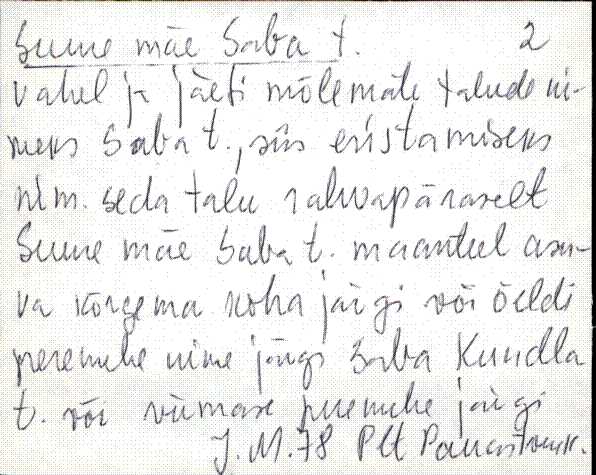 Suure mäe Saba t. 2
vahel ja jäeti mõlemale talude ni-
meks Saba t., siis eristamiseks
nim. seda talu rahvapäraselt
Suure mäe Saba t. maanteel asu-
va kõrgema koha järgi või öeldi
peremehe nime järgi Saba Kundla
t. või viimase peremehe järgi
J. M. 78 Plt